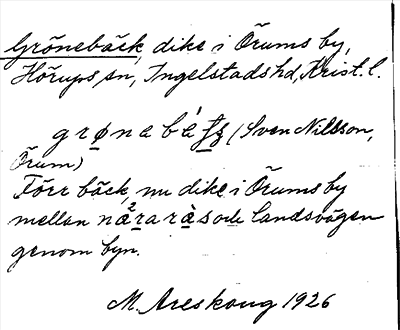 Grönebäck, dike i Örums by,
Hörups sn, Ingelstads hd, Krist. l.
grønabæ̀k (Sven Nilsson,
Örum)
Förr bäck, nu dike i Örums by
mellan och landsvägen
genom byn.
M. Areskoug 1926